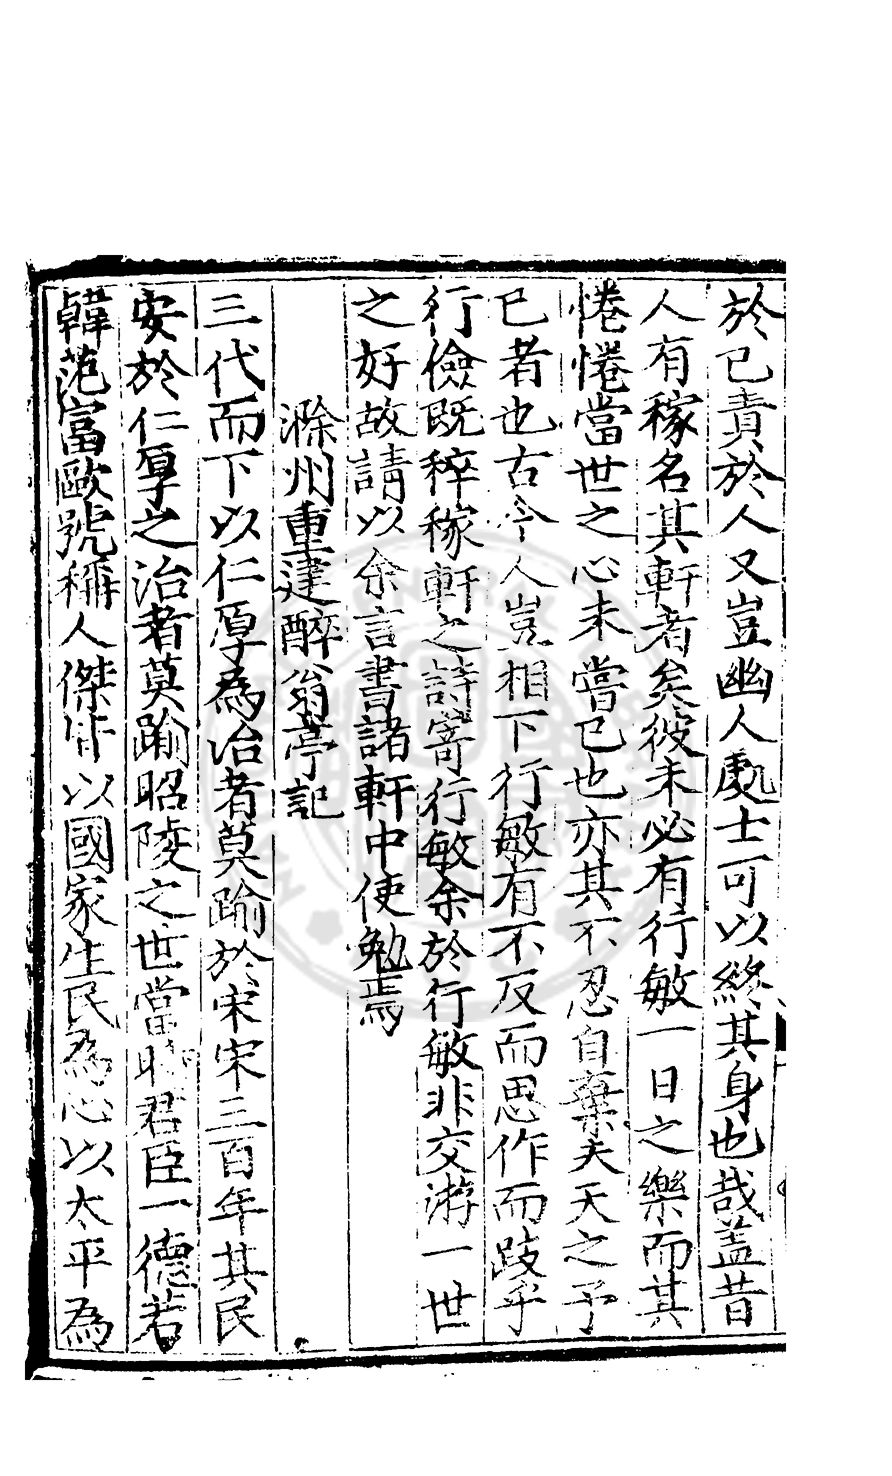 於己責於人又豈幽人處士可以終其身也哉盖昔
人有稼名其軒者矣彼未必有行敏一日之樂而其
惓惓當世之心未嘗已也亦其不忍自棄夫天之予
已者也古今人豈相下行敏有不反而思作而跂乎
行儉既稡稼軒之詩寄行敏余於行敏非交游一世
之好故請以余言書諸軒中使勉焉
滁州重建醉翁亭記
三代而下以仁厚為治者莫踰於宋宋三百年其民
安於仁厚之治者莫踰昭陵之世當時君臣一德若
韓范富歐號稱人傑皆以國家生民為心以太平為